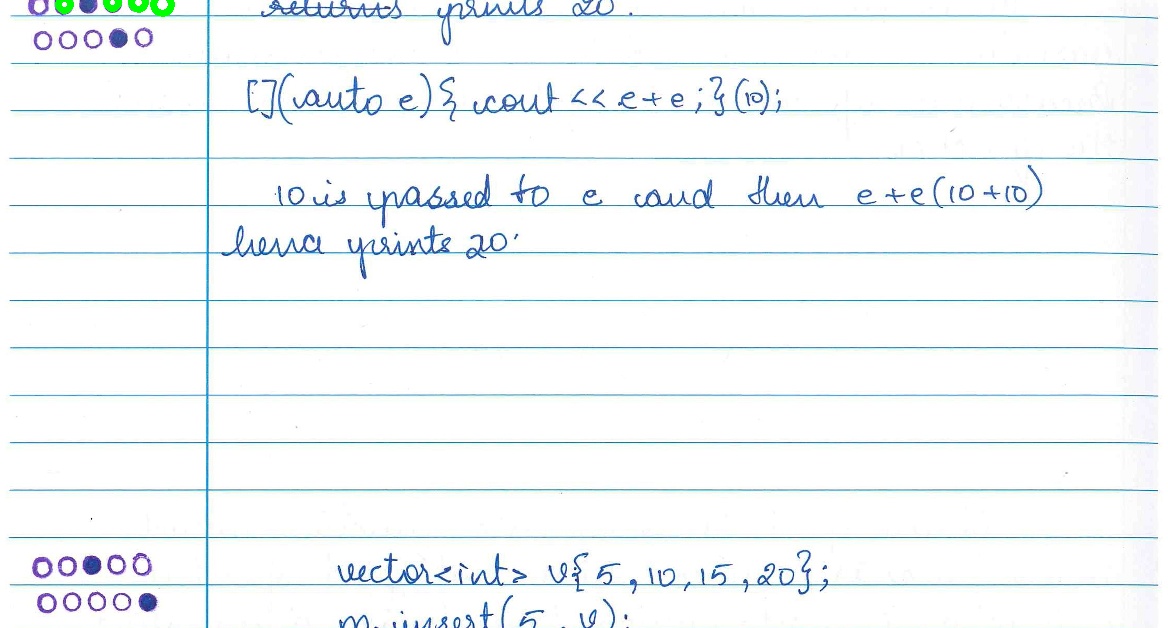 returns prints 20.
[](auto e){ cout << e+e;}(10);
10 is passed to e and then e+e(10+10)
hence prints 20.
vector<int> v{5,10,15,20};
m.insert(5,v);